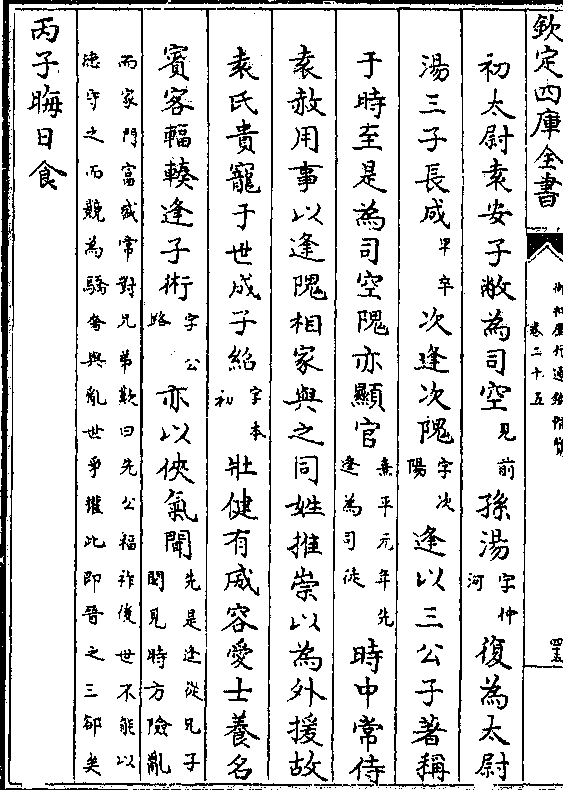 欽定四庫全書
卷二十五
初太尉袁安子敞為司空見前孫湯字仲河復為太尉
湯三子長成早卒次逢次隗字次陽逢以三公子著稱
于時至是為司空隗亦顯官熹平元年先逢為司徒時中常侍
袁赦用事以逢隗相家與之同姓推崇以為外援故
袁氏貴寵于世成子紹字本初壯健有威容愛士養名
賓客輻輳逢子術字公路亦以俠氣聞先是逢從兄子閎見時方險亂
而家門富盛常對兄弟歎曰先公福祚後世不能以
德守之而競為驕奢與亂世爭權此即晉之三郤矣
丙子晦日食